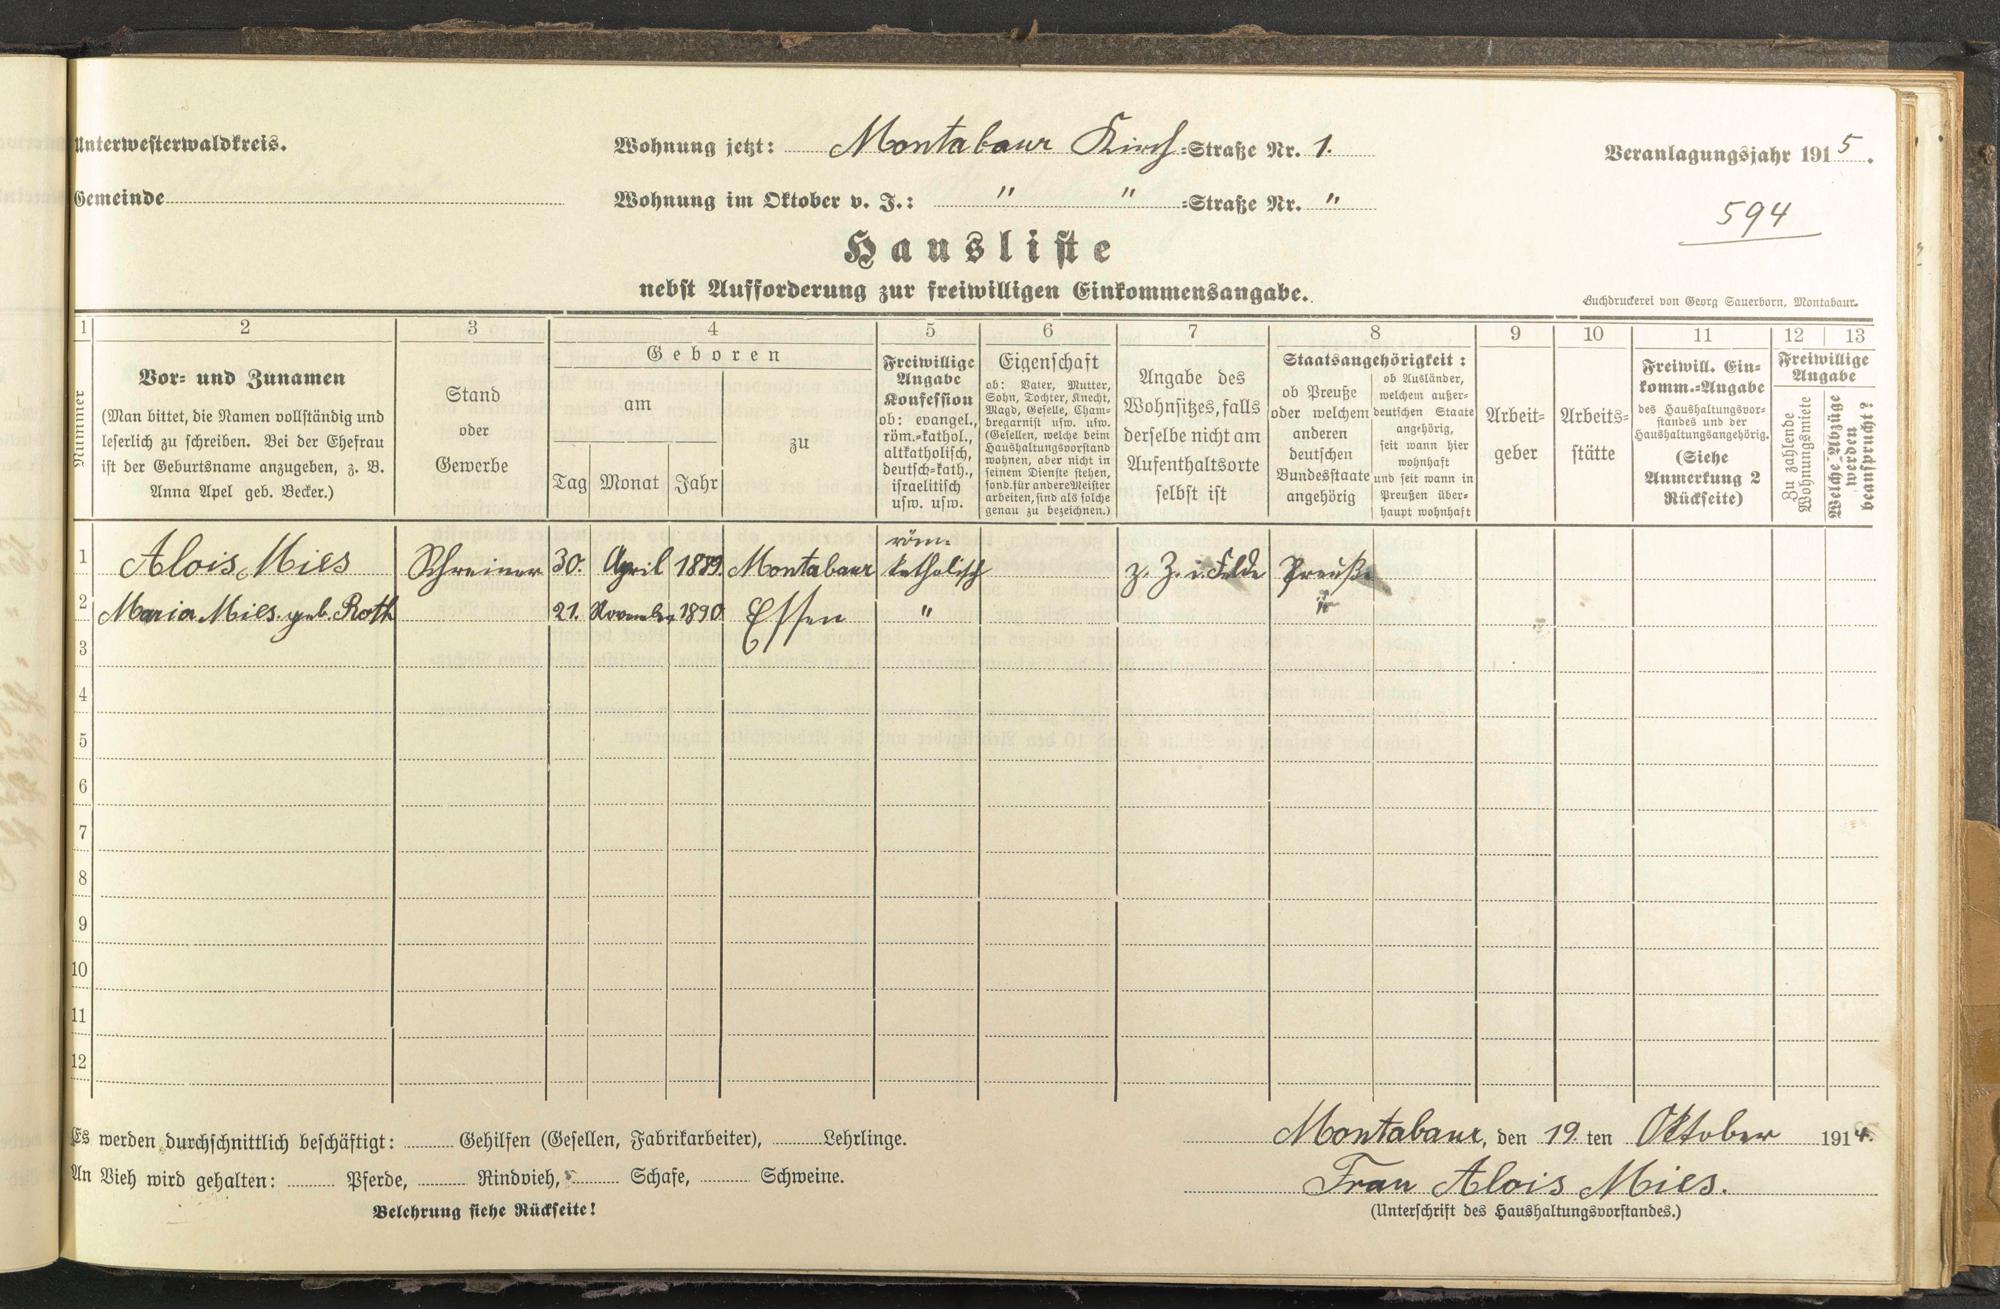 Unterwesterwaldkreis.
Wohnung jetzt: Montabaur Kirch-Straße Nr. 1.
Veranlagungsjahr 1915.
Gemeinde
Wohnung im Oktober v. J.: " " -Straße Nr. "
594
Hausliste
nebst Aufforderung zur freiwilligen Einkommensangabe.
Buchdruckerei von Georg Sauerborn, Montabaur.
1 2 3 4 5 6 7 8 9 10 11 12 13
Nummer
Vor- und Zunamen
(Man bittet, die Namen vollständig und
leserlich zu schreiben. Bei der Ehefrau
ist der Geburtsname anzugeben, z. B.
Anna Apel geb. Becker.)
Stand
oder
Gewerbe
Geboren
am
Tag Monat Jahr
zu
Freiwillige
Angabe
Konfession
ob: evangel.,
röm.-kathol.,
altkatholisch,
deutsch-kath.,
israelitisch
usw. usw.
Eigenschaft
ob: Vater, Mutter,
Sohn, Tochter, Knecht,
Magd, Geselle, Cham-
bregarnist usw. usw.
(Gesellen, welche beim
Haushaltungsvorstand
wohnen, aber nicht in
seinem Dienste stehen,
sond. für andere Meister
arbeiten, sind als solche
genau zu bezeichnen.)
Angabe des
Wohnsitzes, falls
derselbe nicht am
Aufenthaltsorte
selbst ist
Staatsangehörigkeit:
ob Preuße
oder welchem
anderen
deutschen
Bundesstaate
angehörig
ob Ausländer,
welchem außer-
deutschen Staate
angehörig,
seit wann hier
wohnhaft
und seit wann in
Preußen über-
haupt wohnhaft
Arbeit-
geber
Arbeits-
stätte
Freiwill. Ein-
komm.-Angabe
des Haushaltungsvor-
standes und der
Haushaltungsangehörig.
(Siehe
Anmerkung 2
Rückseite)
Freiwillige
Angabe
Zu zahlende
Wohnungsmiete
Welche Abzüge
werden
beansprucht?
1 Alois Mies Schreiner 30. April 1889. Montabaur röm.-
katholisch z. Z. i. Felde Preuße
2 Maria Mies. geb. Roth 21. November 1890 Essen " "
3
4
5
6
7
8
9
10
11
12
Es werden durchschnittlich beschäftigt: Gehilfen (Gesellen, Fabrikarbeiter), Lehrlinge.
Montabaur, den 19. ten Oktober 1914.
An Vieh wird gehalten: Pferde, Rindvieh, Schafe, Schweine.
Frau Alois Mies.
Belehrung siehe Rückseite!
(Unterschrift des Haushaltungsvorstandes.)